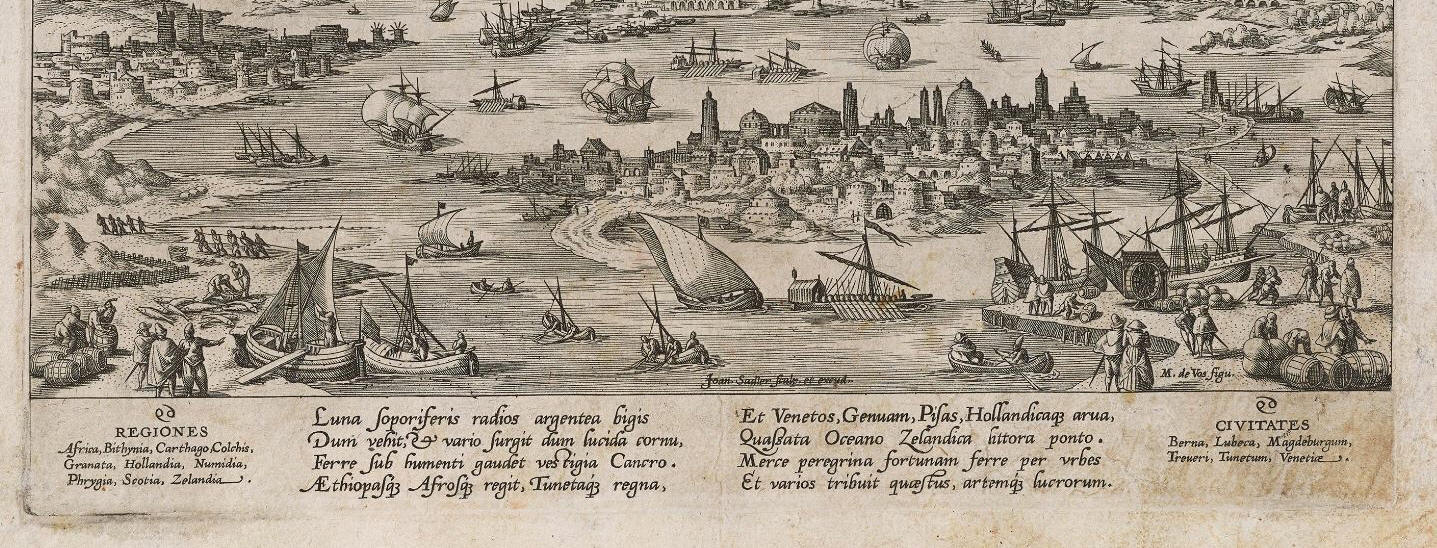 Joan. Sadler sculp. et excud.
M. de Vos figu.
♋
REGIONES
Africa, Bithynia, Carthago, Colchis,
Granata, Hollandia, Numidia,
Phrygia, Scotia, Zelandia.
Luna soporiferis radios argentea bigis
Dum vehit, & vario surgit dum lucida cornu,
Ferre sub humenti gaudet vestigia Cancro.
Æthiopasq; Afrosq; regit, Tunetaq; regna,
Et Venetos, Genuam, Pisas, Hollandicaq; arua,
Quassata Oceano Zelandica littora ponto.
Merce peregrina fortunam ferre per vrbes
Et varios tribuit quæstus, artemq; lucrorum.
♋
CIVITATES
Berna, Lubeca, Magdeburgum,
Treueri, Tunetum, Venetiæ.